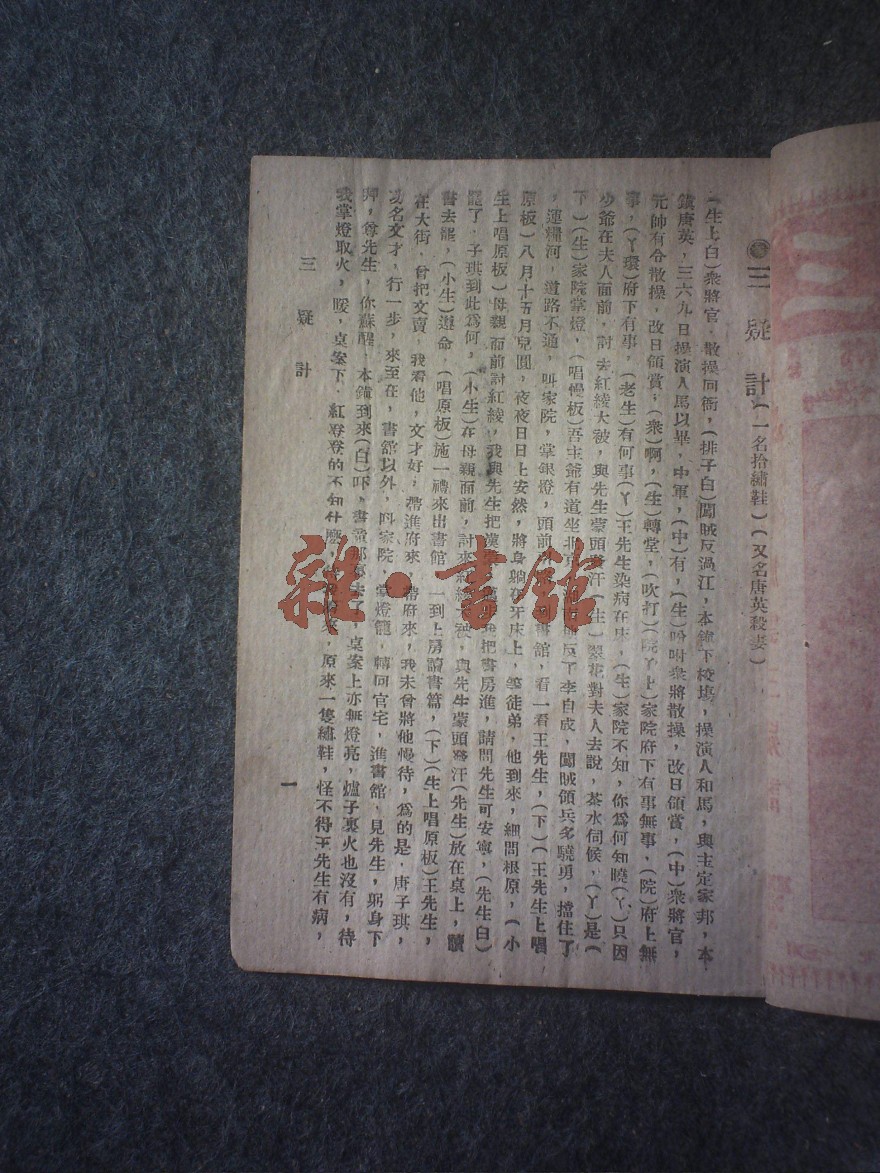 三疑計(一名拾繡鞋)(又名唐英殺妻)
(生上白)衆將官,散操回衙,(排子白)闖賊反過江,本鎮下校塲,操演人和馬,與主定家邦,本
鎮唐英,三六九日操演人馬以畢,中軍,(中)有,(生)吩咐衆將散操,改日領賞,(中)衆將官,
元帥有令散操,改日領賞,(衆)啊,(生)轉堂,(吹打)(院丫上)家院府下有事無事,(院)府上無
事,(丫環)府下有事,(老生)有何事(丫)王先生染病在床,(生)家院不知,你爲何知曉(丫)只因
少爺在夫人面前,討去紅綾大被,與先生蒙頭 汗(生)翠花對夫人去說,茶水伺候,(丫)是(
下)(生)家院掌燈,(唱慢板)吾主爺有道坐北 反了李自成,闖賊領兵多驍勇,擋住了
,運糧河,道路不通,叫家院,掌銀燈,頭前 書館,看一看王先生,(下)(王先生上唱
原板)八月十五月兒圓,夜夜日日上安然,將身躺在牙床上,等徒弟,他到來,細問根原,(小
生上唱原板)母親面前討紅綾,我與先生把漢 我把書房進,請問先生可安寧,(先生白)
罷了,子琪到此爲何,(小生)在母親面前,討來紅綾 被,與先生蒙頭 汗(先生)放在桌上,讀
書去罷,(小生)遵命,(唱原板)施一禮來出書館 一到上房讀書篇,(下)(生上唱原板)王先生,
在大街,曾把文賣,我看他,文才好,帶進府來, 帶府來,我未曾將他慢待,爲的是,唐子琪,
功名文才,行一步,來至在,書館以外,叫家院,掌燈籠,轉回官宅,進書館,見先生,躬身下
拜,尊先生,你蘇醒,本鎮到來(白)吓,書童那 去了,桌案上亦無燈亮,爐子裏火也沒有,待
我掌燈取火,咳,桌案下,紅登登的不知什麽, 來,原來一隻繡鞋,怪不得王先生有病,
三疑計
一
雜·書館